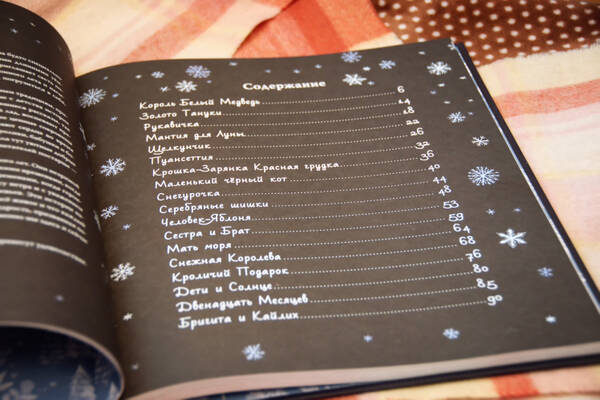 Содержание
Король Белый Медведь 6
Золото Тануки 14
Рукавичка 18
Мантия для Луны 22
Щелкунчик 26
Пуансеттия 32
Крошка-Зарянка Красная грудка 36
Маленький чёрный кот 40
Снегурочка 44
Серебряные шишки 48
Человек-Яблоня 53
Сестра и Брат 59
Мать моря 64
Снежная Королева 68
Кроличий Подарок 76
Дети и Солнце 80
Двенадцать Месяцев 85
Бригита и Кайлих 90